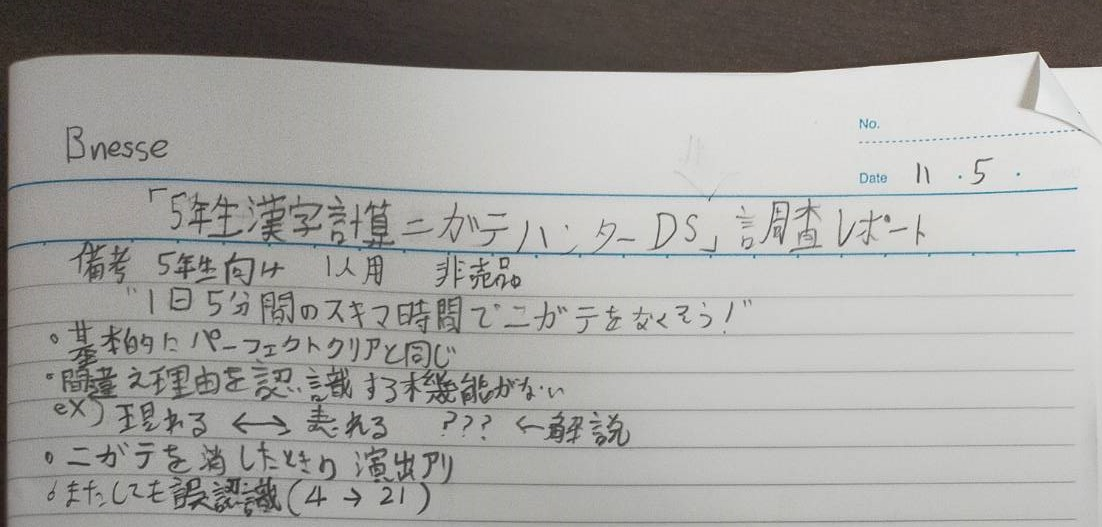 No.
Bnesse
Date 11 . 5 .
「5年生漢字計算ニガテハンターDS」調査レポート
備考 5年生向け 1人用 非売品
"1日5分間のスキマ時間でニガテをなくそう!"
・基本的にパーフェクトクリアと同じ
・間違え理由を認識する機能がない
ex) 現れる ←→ 表れる ??? ←解説
・ニガテを消したときの演出アリ
・またしても誤認識(4→21)